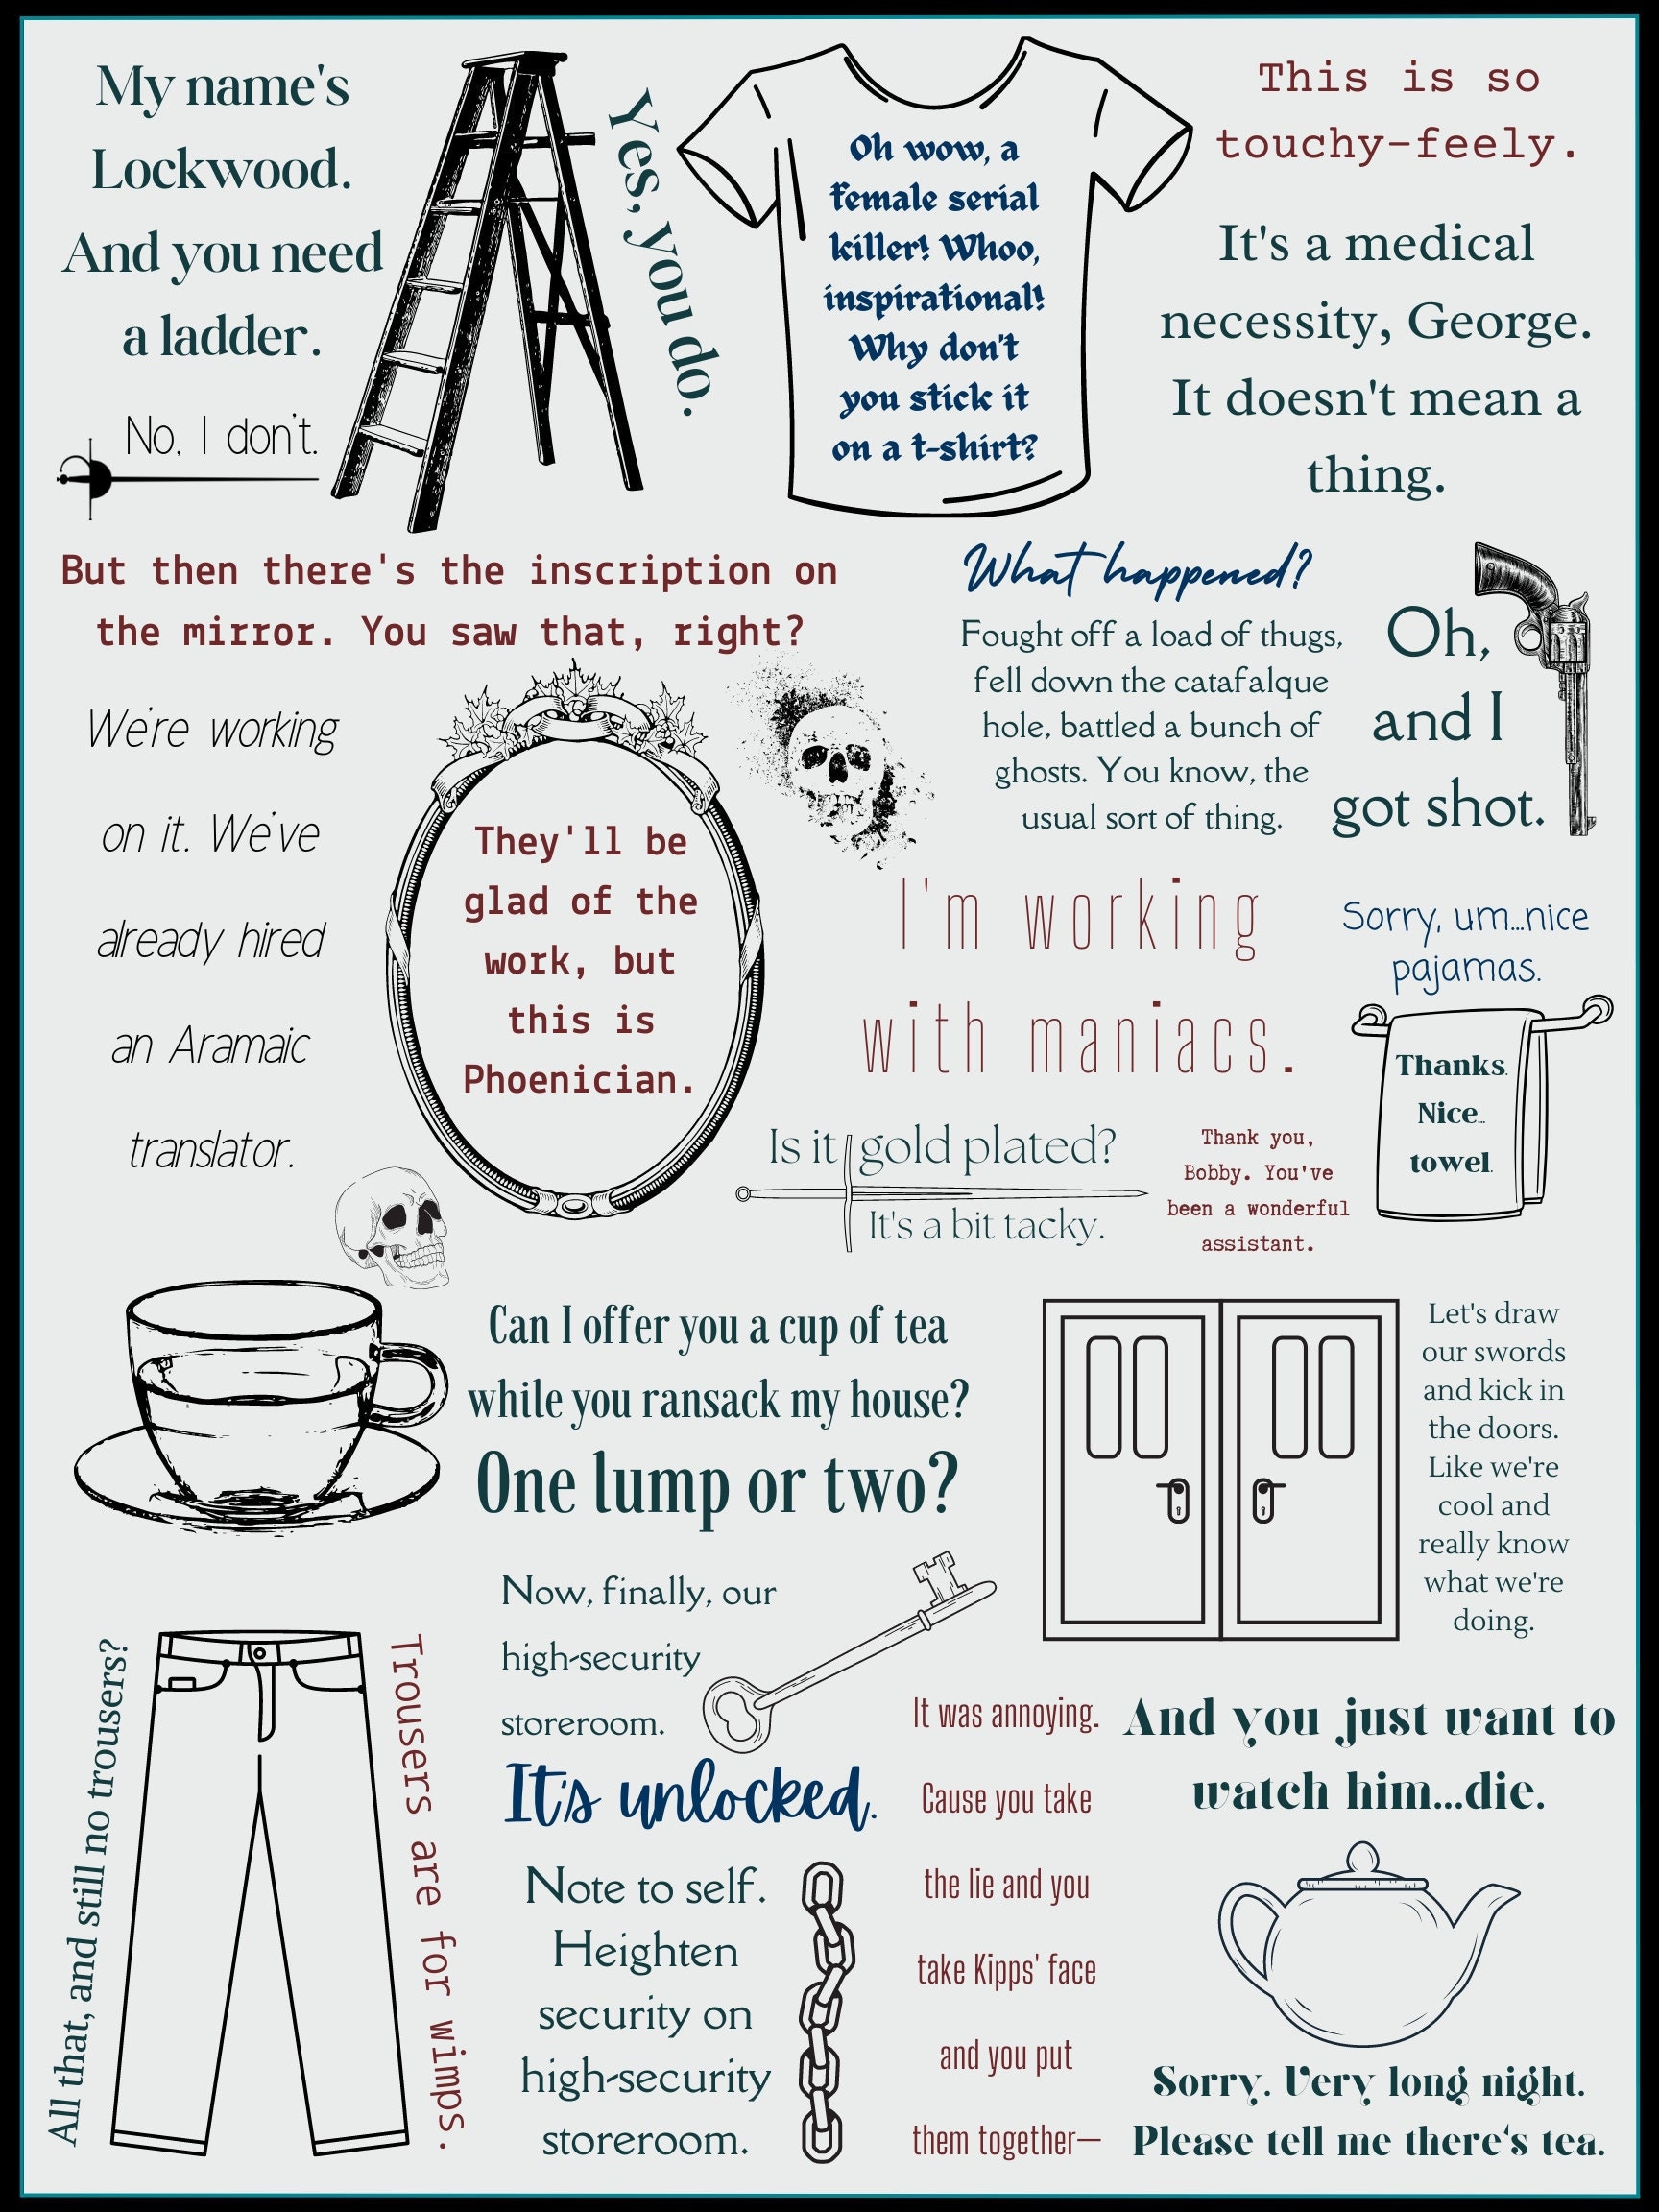 My name's
Lockwood.
And you need
a ladder.
No, I don't.
Yes, you do.
Oh wow, a
female serial
killer! Whoo,
inspirational!
Why don't
you stick it
on a t-shirt?
This is so
touchy-feely.
It's a medical
necessity, George.
It doesn't mean a
thing.
But then there's the inscription on
the mirror. You saw that, right?
We're working
on it. We've
already hired
an Aramaic
translator.
They'll be
glad of the
work, but
this is
Phoenician.
What happened?
Fought off a load of thugs,
fell down the catafalque
hole, battled a bunch of
ghosts. You know, the
usual sort of thing.
Oh,
and I
got shot.
I'm working
with maniacs.
Sorry, um...nice
pajamas.
Thanks.
Nice...
towel.
Is it gold plated?
It's a bit tacky.
Thank you,
Bobby. You've
been a wonderful
assistant.
Can I offer you a cup of tea
while you ransack my house?
One lump or two?
Let's draw
our swords
and kick in
the doors.
Like we're
cool and
really know
what we're
doing.
All that, and still no trousers?
Trousers are for wimps.
Now, finally, our
high-security
storeroom.
It's unlocked.
Note to self.
Heighten
security on
high-security
storeroom.
It was annoying.
Cause you take
the lie and you
take Kipps' face
and you put
them together—
And you just want to
watch him...die.
Sorry. Very long night.
Please tell me there's tea.